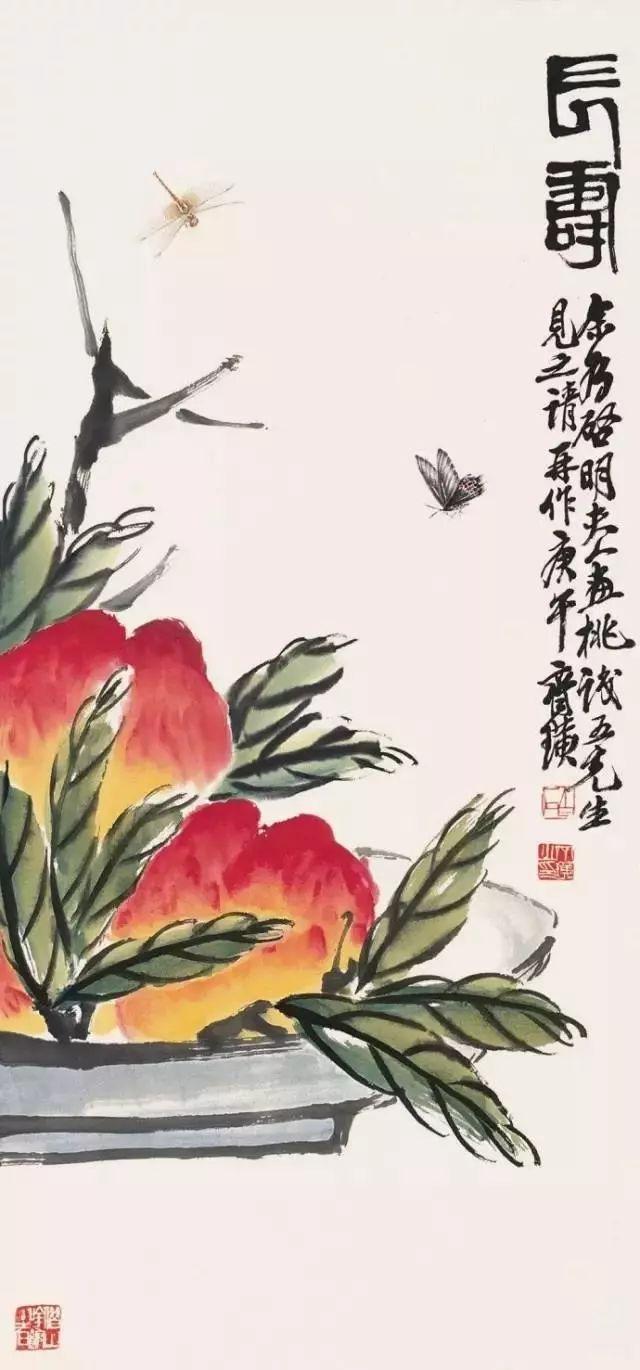 長壽
余為啓明夫人畫桃誠五先生
見之請再作庚午齊璜